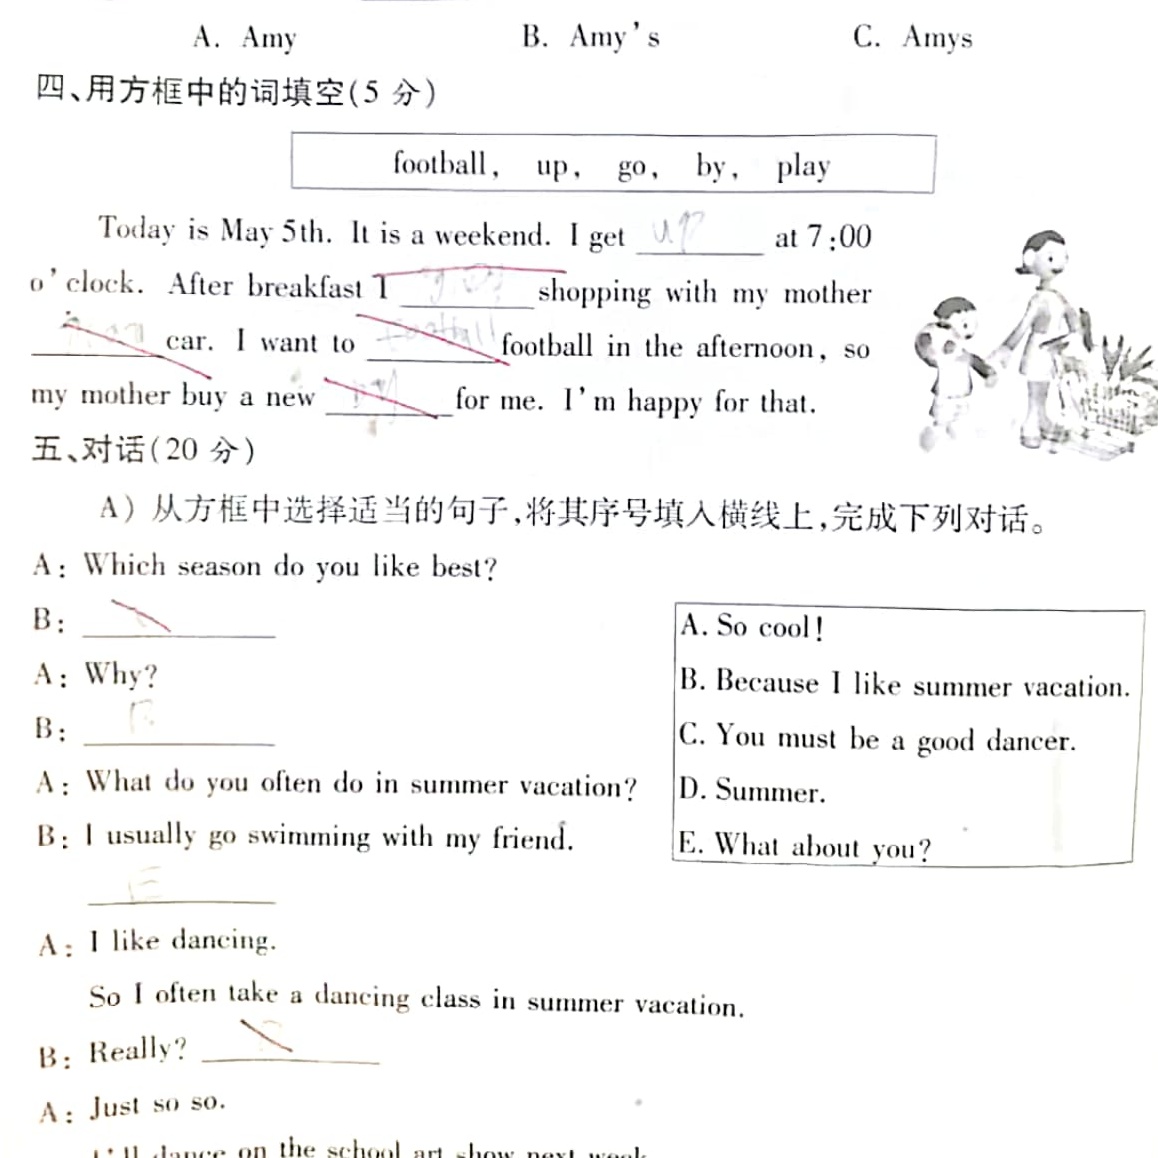 A. Amy B. Amy's C. Amys
四、用方框中的词填空(5 分)
football, up, go, by, play
Today is May 5th. It is a weekend. I get up at 7:00
o'clock. After breakfast I ______ shopping with my mother
______ car. I want to football football in the afternoon, so
my mother buy a new ______ for me. I'm happy for that.
五、对话(20 分)
A) 从方框中选择适当的句子,将其序号填入横线上,完成下列对话。
A: Which season do you like best?
B: ______
A: Why?
B: B
A: What do you often do in summer vacation?
B: I usually go swimming with my friend.
E
A: I like dancing.
So I often take a dancing class in summer vacation.
B: Really? ______
A: Just so so.
I'll dance on the school art show next week
A. So cool!
B. Because I like summer vacation.
C. You must be a good dancer.
D. Summer.
E. What about you?